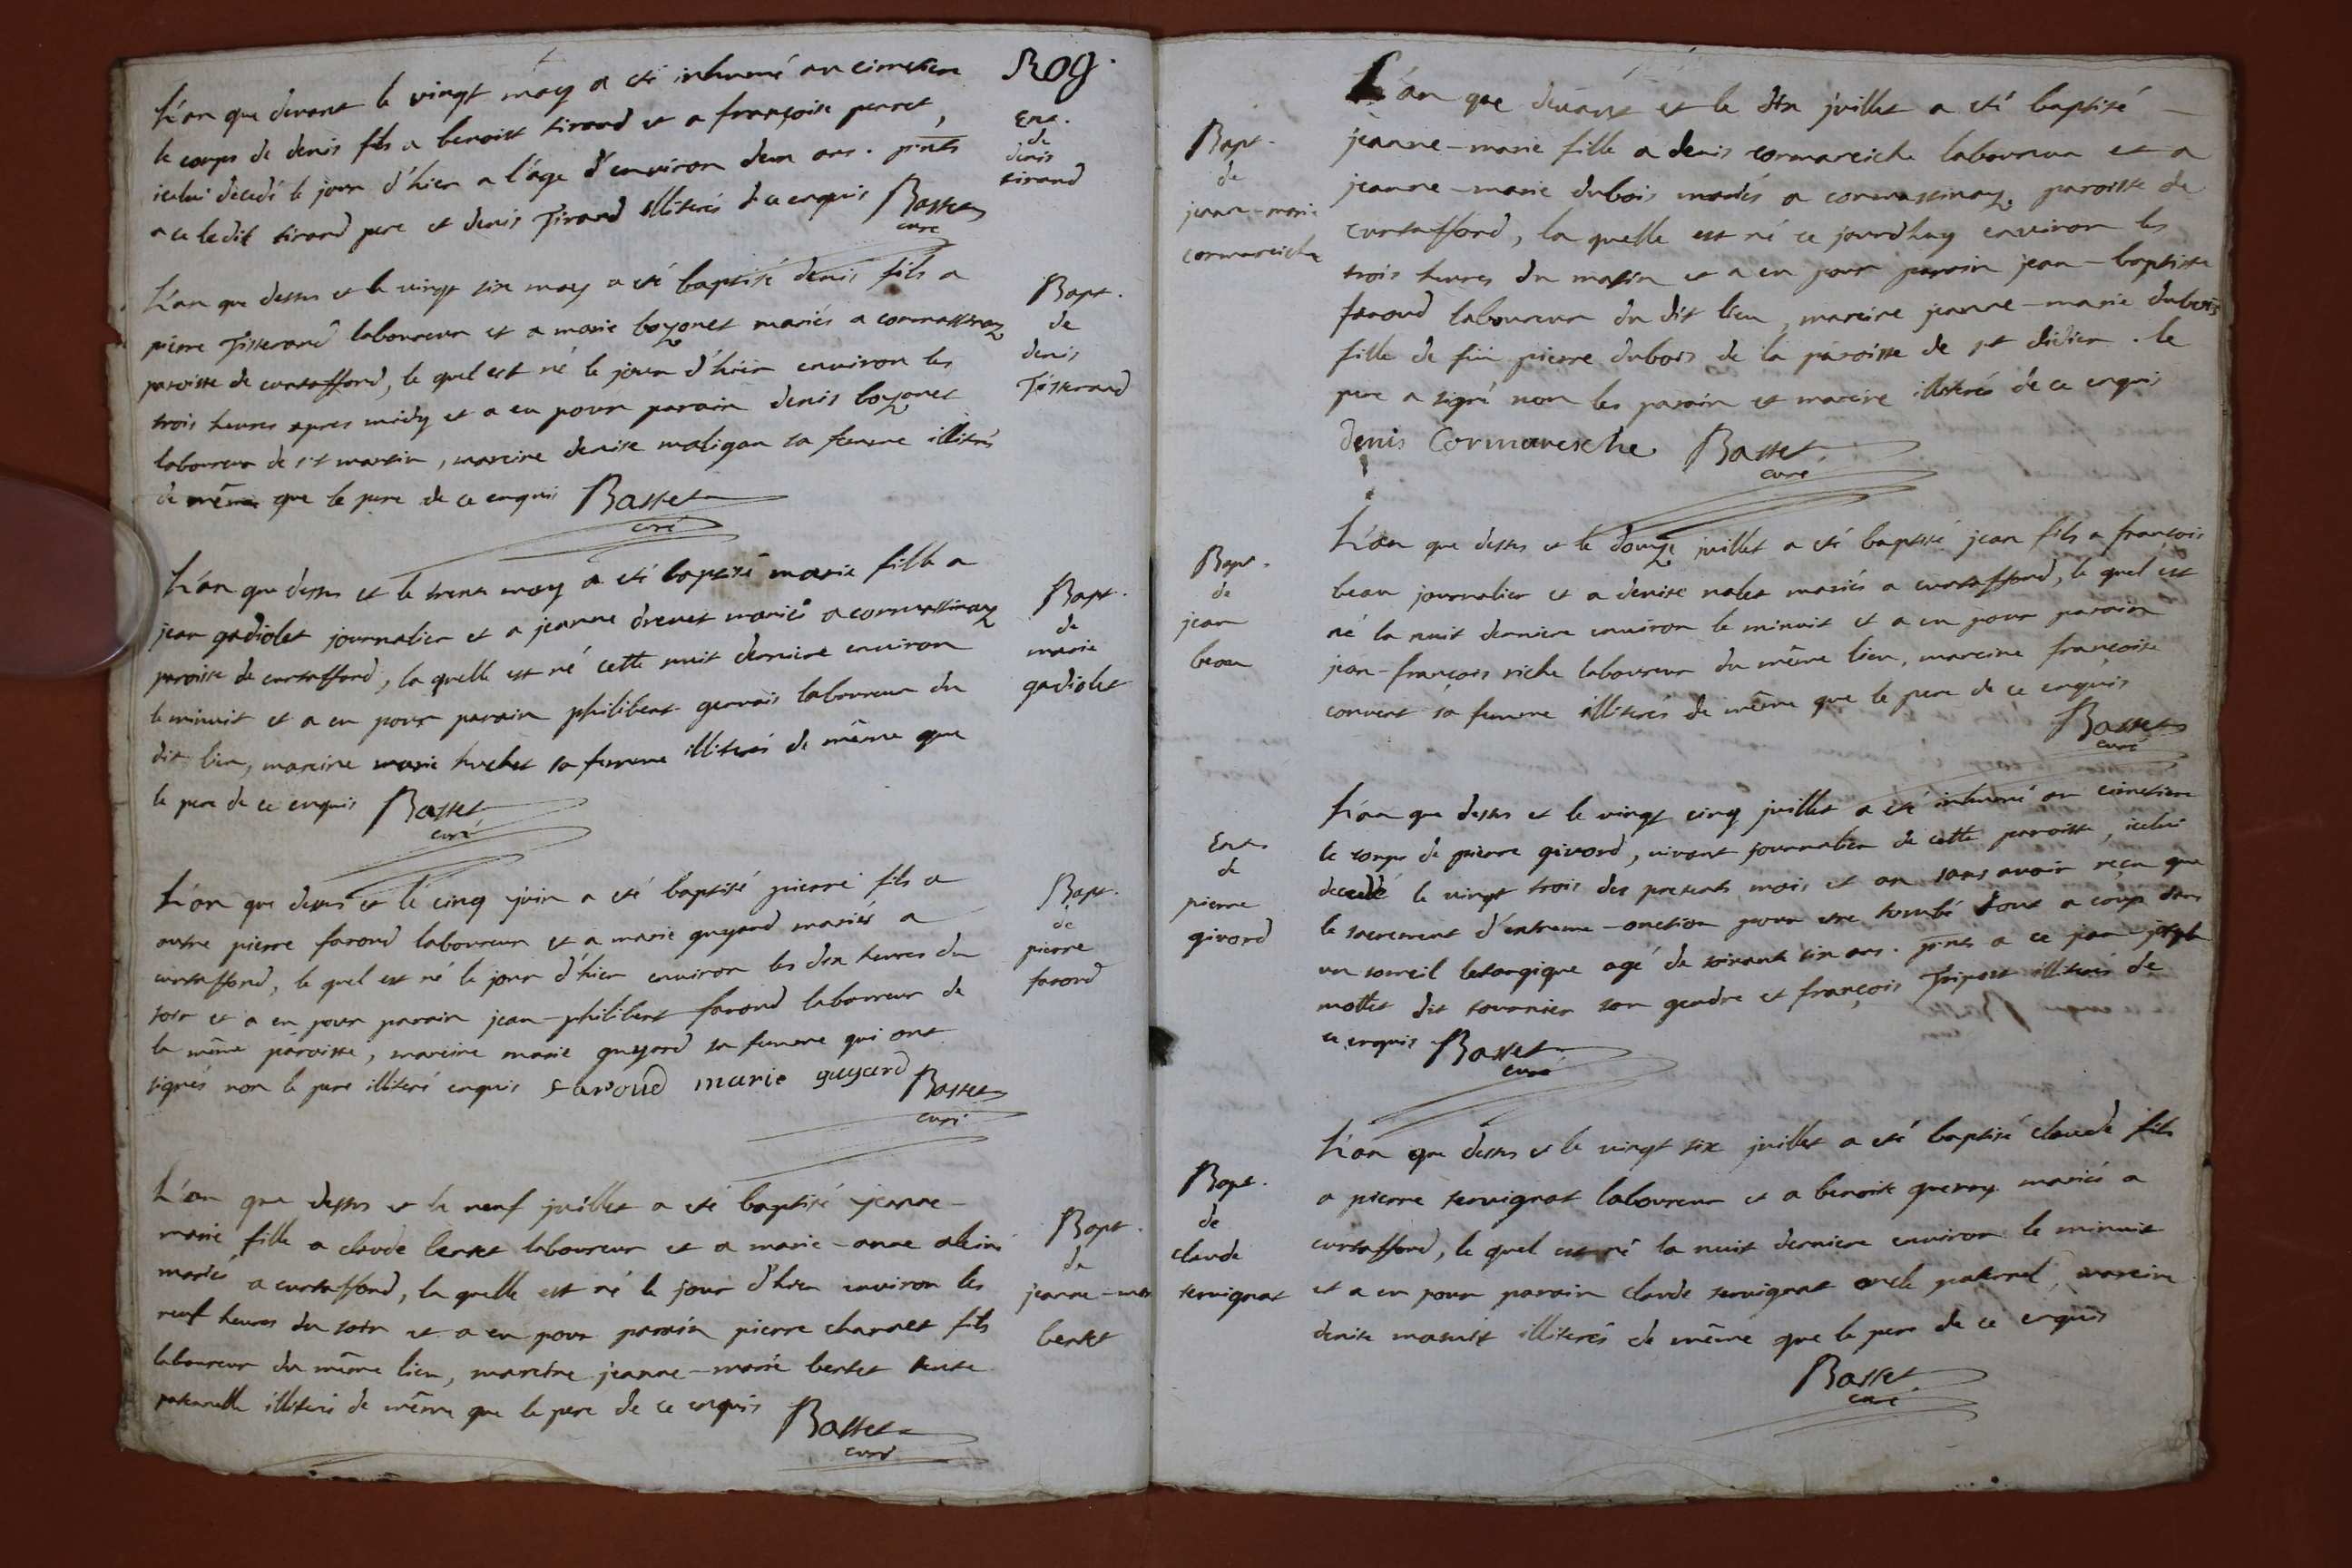 Rog.
L'an que devant le vingt may a eté inhumé au cimetiere
le corps de denis fils a benoist tirand et a françoise perret,
icelui decedé le jour d'hier a l'âge d'environ deux ans. pnts
a ce ledit tirand pere et denis Tirand illiterés de ce enquis Basset
curé
Ent.
de
denis
tirand
L'an que dessus et le vingt six may a eté baptisé denis fils a
pierre Tisserand laboureur et a marie bozonet mariés a cormassinaz
paroisse de curtaffond, le quel est né le jour d'hier environ les
trois heures apres midy et a eu pour parain denis bozonet
laboureur de st martin, mareine denise maligau sa femme illiterés
de même que le pere de ce enquis Basset
curé
Bapt.
de
denis
Tisserand
L'an que dessus et le trente may a eté baptisé marie fille a
jean gadiolet journalier et a jeanne drevet mariés a cormassinaz
paroisse de curtaffond, la quelle est né cette nuit derniere environ
le minuit et a eu pour parain philibert gervais laboureur du
dit lieu, mareine marie huchet sa femme illiterés de même que
le pere de ce enquis Basset
curé
Bapt.
de
marie
gadiolet
L'an que dessus et le cinq juin a eté baptisé pierre fils a
autre pierre farond laboureur et a marie guyard mariés a
curtaffond, le quel est né le jour d'hier environ les dix heures du
soir et a eu pour parain jean-philibert farond laboureur de
la même paroisse, mareine marie guyard sa femme qui ont
signés non le pere illiteré enquis faroud marie guyard Basset
curé
Bapt.
de
pierre
farond
L'an que dessus et le neuf juillet a eté baptisé jeanne-
marie fille a claude bertet laboureur et a marie-anne
mariés a curtaffond, la quelle est né le jour d'hier environ les
neuf heures du soir et a eu pour parain pierre charnet fils
laboureur du même lieu, mareine jeanne-marie bertet tante
paternelle illiterés de même que le pere de ce enquis Basset
curé
Bapt.
de
jeanne-marie
bertet
L'an que devant et le dix juillet a eté baptisé
jeanne-marie fille a denis cormareiche laboureur et a
jeanne-marie dubois mariés a cormassinaz paroisse de
curtaffond, la quelle est né ce jourdhuy environ les
trois heures du matin et a eu pour parain jean-baptiste
farond laboureur du dit lieu, mareine jeanne-marie dubois
fille de feu pierre dubois de la paroisse de st didier. le
pere a signé non les parain et mareine illiterés de ce enquis
denis Cormaresche Basset
curé
Bapt.
de
jeanne-marie
cormareiche
L'an que dessus et le douze juillet a eté baptisé jean fils a françois
beau journalier et a denise nalet mariés a curtaffond, le quel est
né la nuit derniere environ le minuit et a eu pour parain
jean-françois riche laboureur du même lieu, mareine françoise
convert sa femme illiterés de même que le pere de ce enquis
Basset
curé
Bapt.
de
jean
beau
L'an que dessus et le vingt cinq juillet a eté inhumé au cimetiere
le corps de pierre givord, vivant journalier de cette paroisse, icelui
decedé le vingt trois des presents mois et an sans avoir reçu que
le sacrement d'extreme-onction pour etre tombé tout a coup dans
un someil letargique agé de soixante six ans. pnts a ce jean-joseph
mottet dit tournier son gendre et françois Tripost illiterés de
ce enquis Basset
curé
Ent.
de
pierre
givord
L'an que dessus et le vingt six juillet a eté baptisé claude fils
a pierre servignat laboureur et a benoite querry mariés a
curtaffond, le quel est né la nuit derniere environ le minuit
et a eu pour parain claude servignat oncle paternel, mareine
denise masuit illiterés de même que le pere de ce enquis
Basset
curé
Bapt.
de
claude
servignat